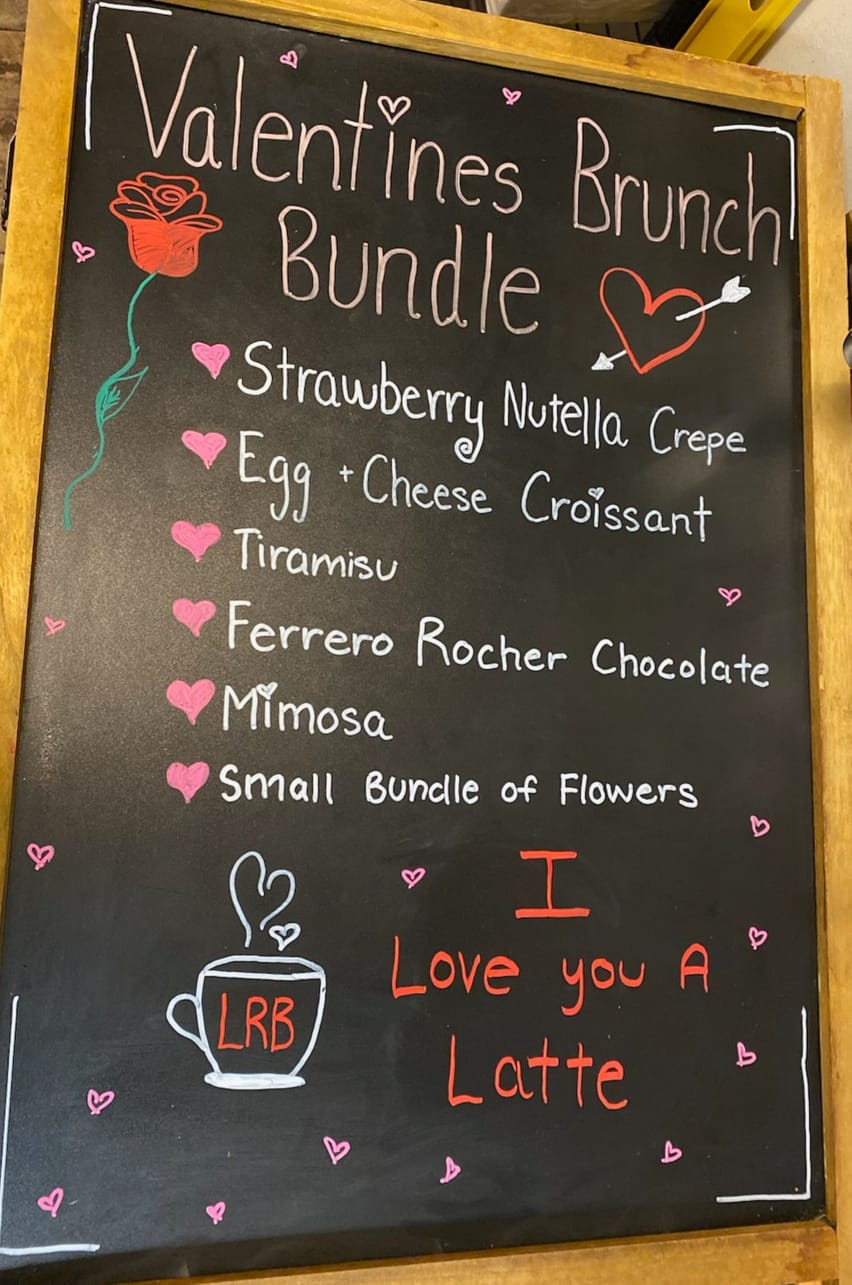 Valentines Brunch
Bundle
Strawberry Nutella Crepe
Egg + Cheese Croissant
Tiramisu
Ferrero Rocher Chocolate
Mimosa
Small Bundle of Flowers
I
Love you A
Latte
LRB